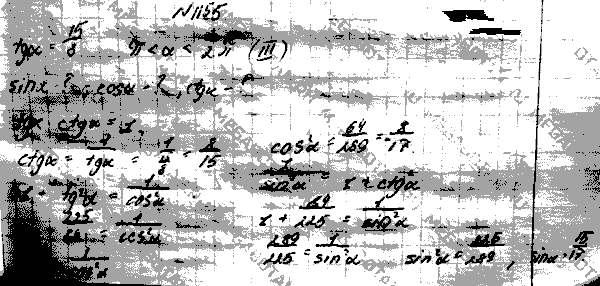 N 1155
tgα = 15/8   π < α < 2π (III)
sinα - ?, cosα - ?, ctgα - ?
tgα · ctgα = 1,
ctgα = 1/tgα = = 8/15
1 + tg²α = 1/cos²α
= 1/cos²α
cos²α = 64/289 = 8/17
1/sin²α = 1 + ctg²α
1 + 64/225 = 1/sin²α
289/225 = 1/sin²α   sin²α = 225/289, sinα = 15/17